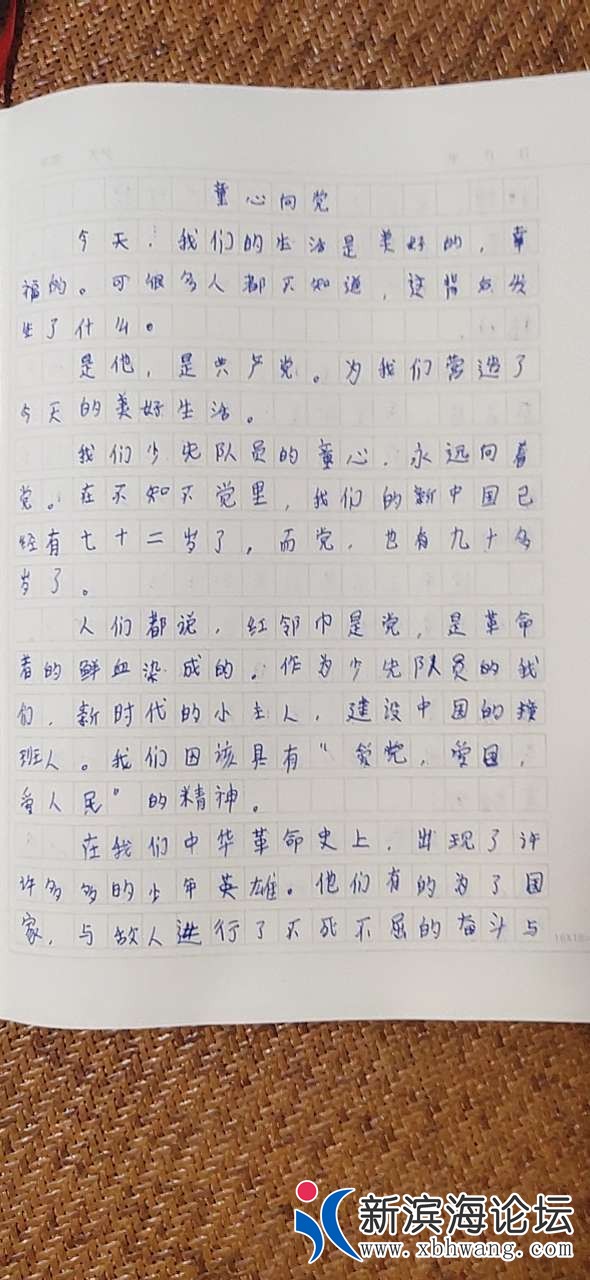 童心向党
今天，我们的生活是美好的，幸
福的。可很多人都不知道，这背后发
生了什么。
是他，是共产党。为我们营造了
今天的美好生活。
我们少先队员的童心，永远向着
党。在不知不觉里，我们的新中国已
经有七十二岁了，而党，也有九十多
岁了。
人们都说，红邻巾是党，是革命
者的鲜血染成的。作为少先队员的我
们，新时代的小主人，建设中国的接
班人。我们因该具有“爱党，爱国，
爱人民”的精神。
在我们中华革命史上，出现了许
许多多的少年英雄。他们有的为了国
家，与敌人进行了不死不屈的奋斗与
新滨海论坛
www.xbhwang.com